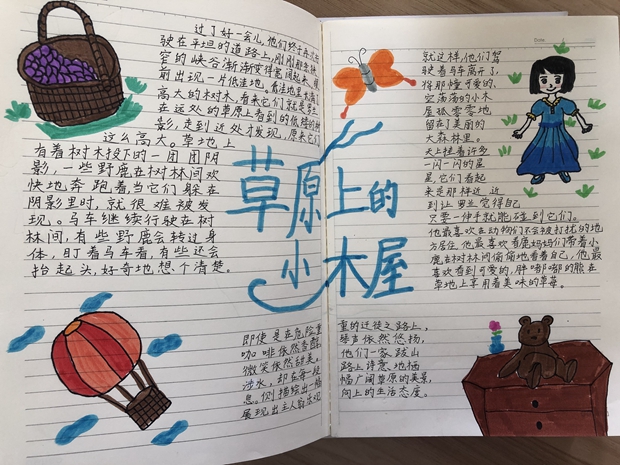 过了好一会儿,他们终于再次行
驶在平坦的道路上,刚刚那条狭
窄的峡谷渐渐变得宽阔起来,眼
前出现一片低洼地,看洼地里长满了
高大的树木,看来它们就是爸爸
在远处的草原上看到的低矮的树
影,走到近处才发现,原来它们
这么高大。草地上
有着树木投下的一团团阴
影,一些野鹿在树林间欢
快地奔跑着当它们躲在
阴影里时,就很难被发
现。马车继续行驶在树
林间,有些野鹿会转过身
体,盯着马车看,有些还会
抬起头,好奇地想个清楚。
草原上的
小木屋
即使是在危险重
咖啡依然香醇
微笑依然甜美,
涉水,却在每一段
息。侧描绘出一幅
展现出主人翁乐观
Date
就这样,他们驾
驶着马车离开了,
得那幢可爱的、
空荡荡的小木
屋孤零零地
留在了美丽的
大森林里。
天上挂着许多
一闪一闪的星
星,它们看起
来是那样近,近
到让罗兰觉得自己
只要一伸手就能碰到它们。
他最喜欢在动物们不会被打扰的地
方居住,他最喜欢看鹿妈妈们带着小
鹿在树林间偷偷地看着自己,他最
喜欢看到可爱的,胖嘟嘟的熊在
草地上享用着美味的草莓。
重的迁徙之路上,
琴声依然悠扬,
他们一家跋山
路上诗意地栖
幅广阔草原的美景,
向上的生活态度。